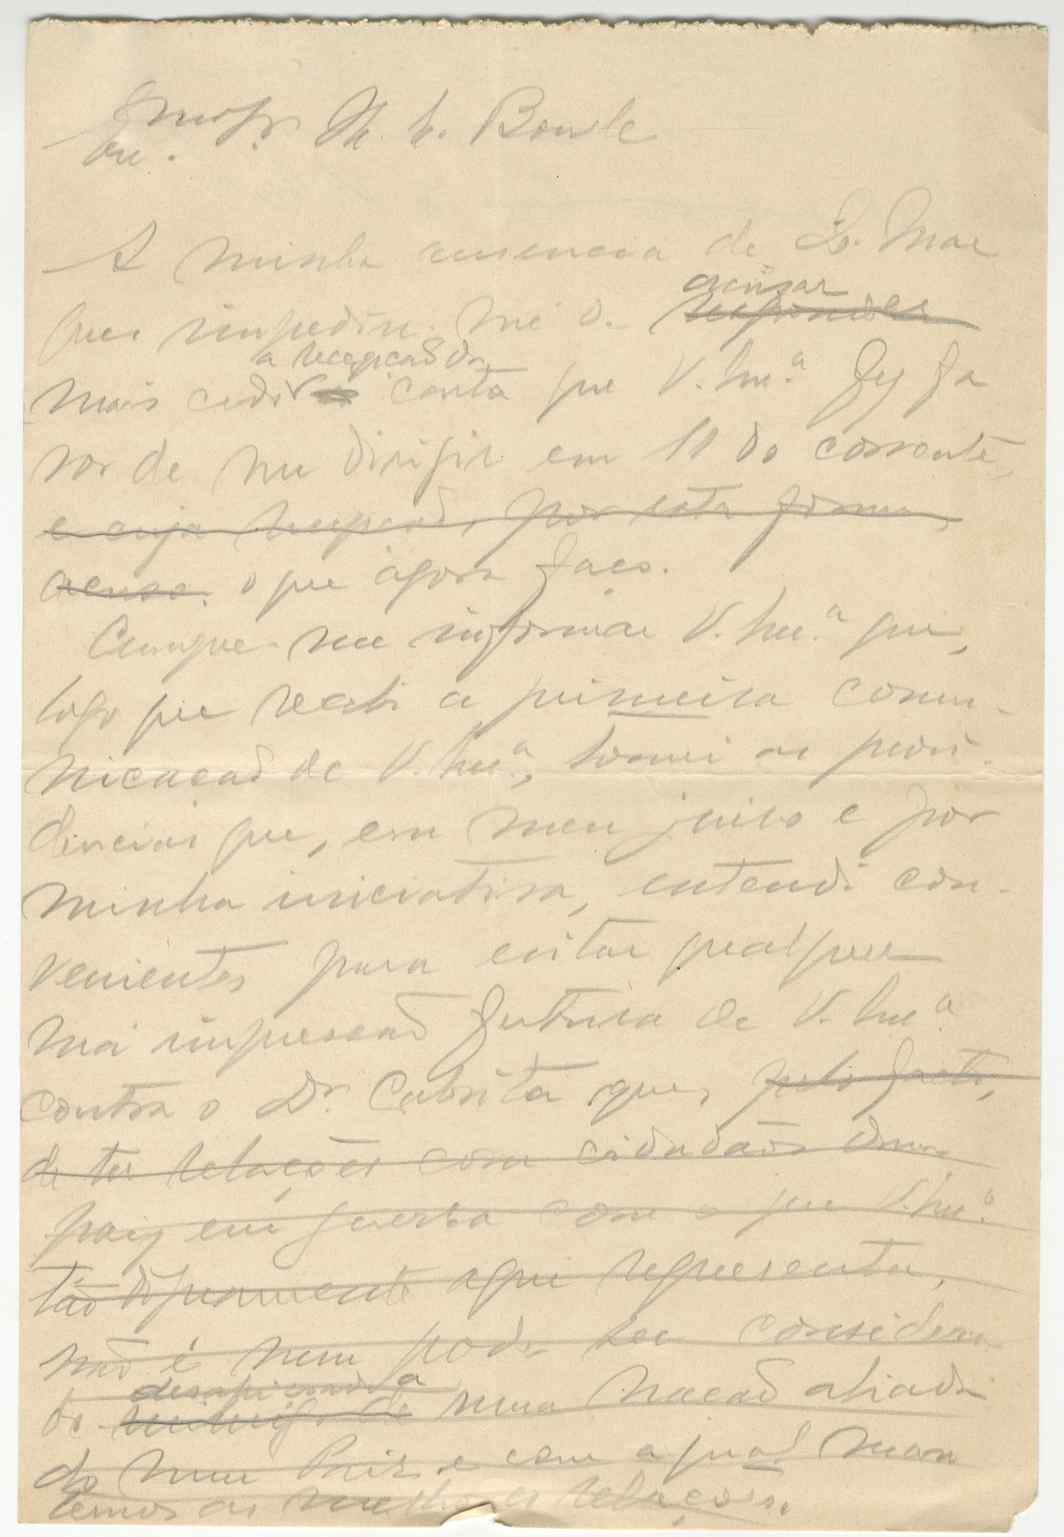 H. L. Bowle
A minha ausencia de S. Mar
impediu-me de accusar responder
a recepção da
mais cedo a carta que V. Exe.ª fez fa
vor de me dirigir em 11 do corrente,
e cuja recepção, por esta forma,
acuso. o que agora faço.
Cumpre-me informar V. Exe.ª que,
logo que recebi a primeira comu-
nicação de V. Exe.ª, tomei as provi-
dencias que, em meu juizo e por
minha iniciativa, entendi con-
venientes para evitar qualquer
má impressão futura de V. Exe.ª
contra o Dr. Cabrita que, pelo facto,
de ter relações com cidadãos dum
paiz em guerra com o que V. Exe.ª
tão dignamente aqui representa,
não é nem pode ser considera-
desafeiçoado a
do inimigo de uma nação aliada
do meu Paiz e com a qual man
temos as melhores relações.